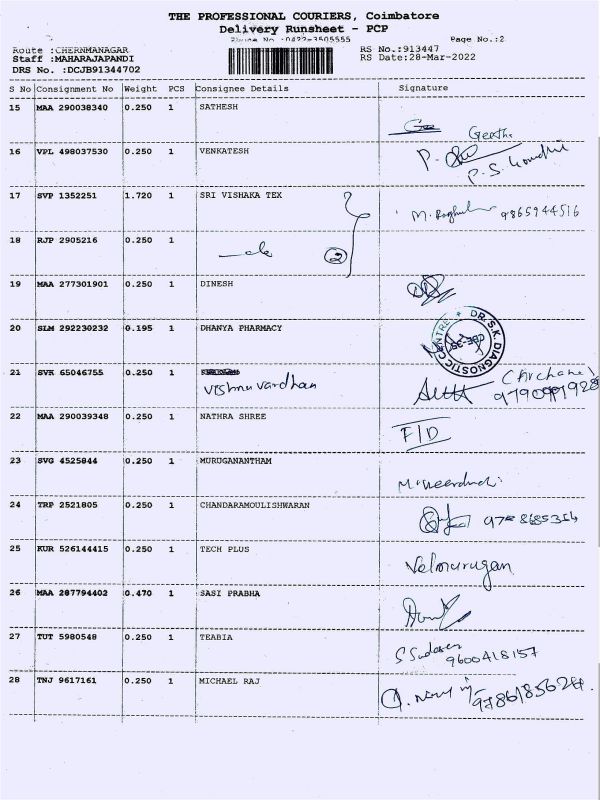 THE PROFESSIONAL COURIERS, Coimbatore
Delivery Runsheet - PCP
Phone No :0422-3505555 Page No.:2
Route :CHERNMANAGAR RS No.:913447
Staff :MAHARAJAPANDI RS Date:28-Mar-2022
DRS No. :DCJB91344702
S No Consignment No Weight PCS Consignee Details Signature
15 MAA 290038340 0.250 1 SATHESH
Geetha
16 VPL 498037530 0.250 1 VENKATESH
17 SVP 1352251 1.720 1 SRI VISHAKA TEX
9865944516
18 RJP 2905216 0.250 1
2
19 MAA 277301901 0.250 1 DINESH
20 SLM 292230232 0.195 1 DHANYA PHARMACY
DR.S.K. DIAGNOSTIC CENTRE
21 SVK 65046755 0.250 1
Vishnuvardhan
22 MAA 290039348 0.250 1 NATHRA SHREE
F/D
23 SVG 4525844 0.250 1 MURUGANANTHAM
24 TRP 2521805 0.250 1 CHANDARAMOULISHWARAN
25 KUR 526144415 0.250 1 TECH PLUS
Velmurugan
26 MAA 287794402 0.470 1 SASI PRABHA
27 TUT 5980548 0.250 1 TEABIA
9600418157
28 TNJ 9617161 0.250 1 MICHAEL RAJ